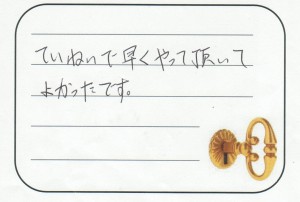 ていねいで早くやって頂いて
よかったです。